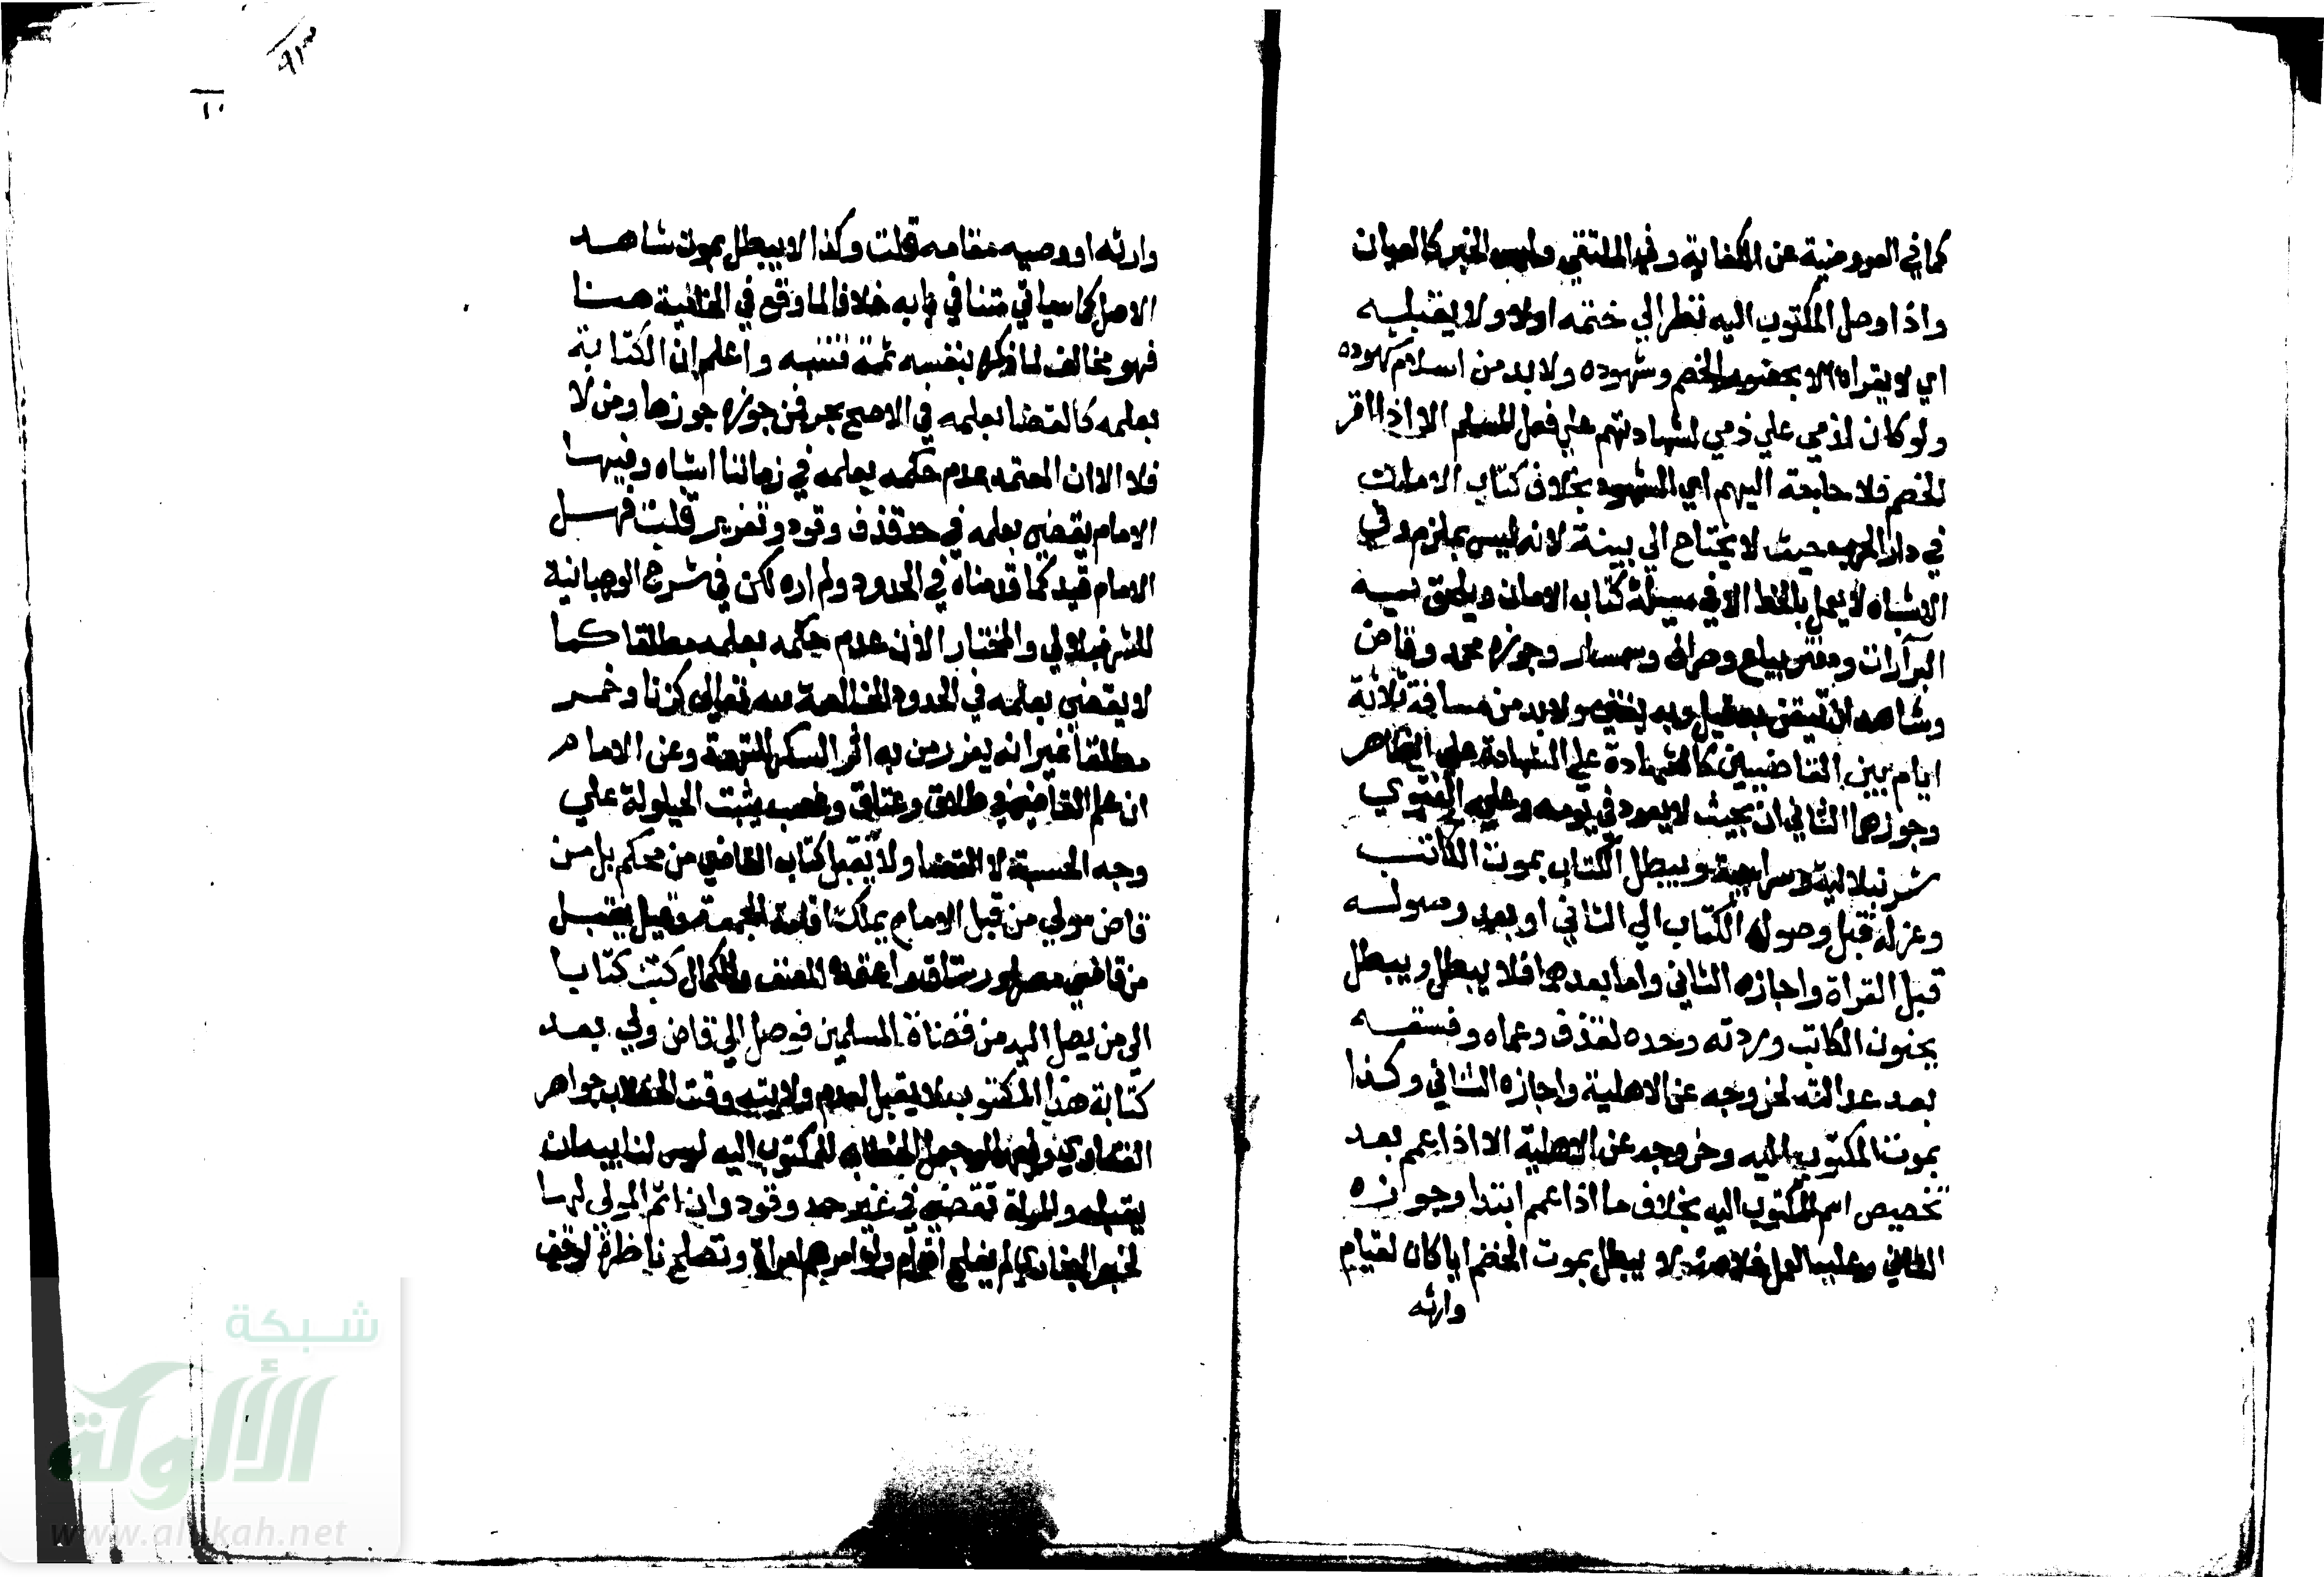 كما في العزمية عن الكفاية وفي الملتقي وليس الخبر كالعيان
واذا وصل المكتوب اليه نظر الي ختمه اولا ولا يقبله
اي لا يقراه الا بحضور الخصم وشهوده ولا بد من اسلام شهوده
ولو كان لذمي علي ذمي لشهادتهم علي فعل المسلم الا اذا اقر
الخصم فلا حاجة اليهم اي الشهود بخلاف كتاب الامان
في دار الحرب حيث لا يحتاج الي بينة لانه ليس بملزم وفي
الاشباه لا يعمل بالخط الا في مسيلة كتاب الامان ويلحق به
البرآات ودفتر بياع وصراف وسمسار وجوزه محمد وقاض
وشاهد ان تيقن به قيل وبه يفتي ولا بد من مسافة ثلاثة
ايام بين القاضيين كالشهادة علي الشهادة علي الظاهر
وجوزهما الثاني ان بحيث لا يعود في يومه وعليه الفتوي
شرنبلالية وسراجية ويبطل الكتاب بموت الكاتب
وعزله قبل وصول الكتاب الي الثاني او بعد وصوله
قبل القراة واجازه الثاني واما بعدهما فلا يبطل ويبطل
بجنون الكاتب وردته وحده لقذف وعماه وفسقه
بعد عدالته لخروجه عن الاهلية واجازه الثاني وكذا
بموت المكتوب اليه وخروجه عن الاهلية الا اذا عمم بعد
تخصيص اسم المكتوب اليه بخلاف ما اذا عمم ابتدا وجوزه
الثاني وعليه العمل خلاصة لا يبطل بموت الخصم ايا كان لقيام
وارثه
وارثه او وصيه مقامه قلت وكذا لا يبطل بموت شاهد
الاصل كما سياتي متنا في بابه خلافا لما وقع في الخانية هنا
فهو مخالف لما ذكره بنفسه ثمة فتنبه واعلم ان الكتابة
بعلمه كالقضا بعلمه في الاصح بحر فمن جوزه جوزها ومن لا
فلا الا ان المعتمد عدم حكمه بعلمه في زماننا اشباه وفيها
الامام يقضي بعلمه في حد قذف وقود وتعزير قلت فهل
الامام قيد كما قدمناه في الحدود ولم اره لكن في شرح الوهبانية
للشرنبلالي والمختار الان عدم حكمه بعلمه مطلقا كما
لا يقضي بعلمه في الحدود الخالصة لله تعالي كزنا وخمر
مطلقا غير انه يعزر من به اثر السكر للتهمة وعن الامام
ان علم القاضي في طلاق وعتاق وغصب يثبت الحيلولة علي
وجه الحسبة لا القضا ولا يقبل كتاب القاضي من محكم بل من
قاض مولي من قبل الامام يملك اقامة الجمعة وقيل يقبل
من قاضي مصر او رستاق واعتمده المصنف والكمال كتب كتابا
الي من يصل اليه من قضاة المسلمين فوصل الي قاض ولي بعد
كتابة هذا المكتوب لا يقبل لعدم ولايته وقت الخطاب جواهر
الفتاوي وفيها لو جعل الخطاب للمكتوب اليه ليس لنايبه ان
يقبله والمراة تقضي في غير حد وقود وان اثم المولي لها
لخبر البخاري لم يفلح قوم ولوا امرهم امراة وتصلح ناظرة لوقف
شبكة
الألوكة
www.alukah.net